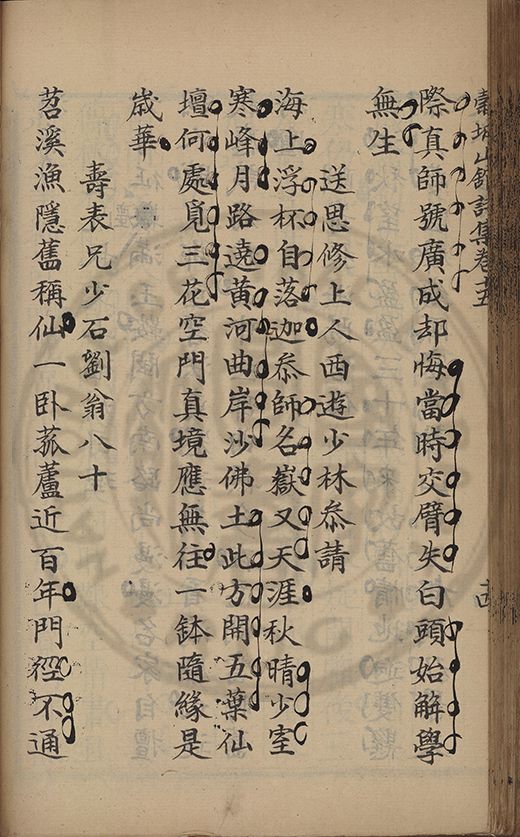 際真師號廣成却悔當時交臂失白頭始解學
無生
送思修上人西遊少林叅請
海上浮杯自落迦叅師名嶽又天涯秋晴少室
寒峰月路遶黃河曲岸沙佛土此方開五葉仙
壇何處覓三花空門真境應無往一鉢隨緣是
歳華
壽表兄少石劉翁八十
苕溪漁隱舊稱仙一卧菰蘆近百年門徑不通